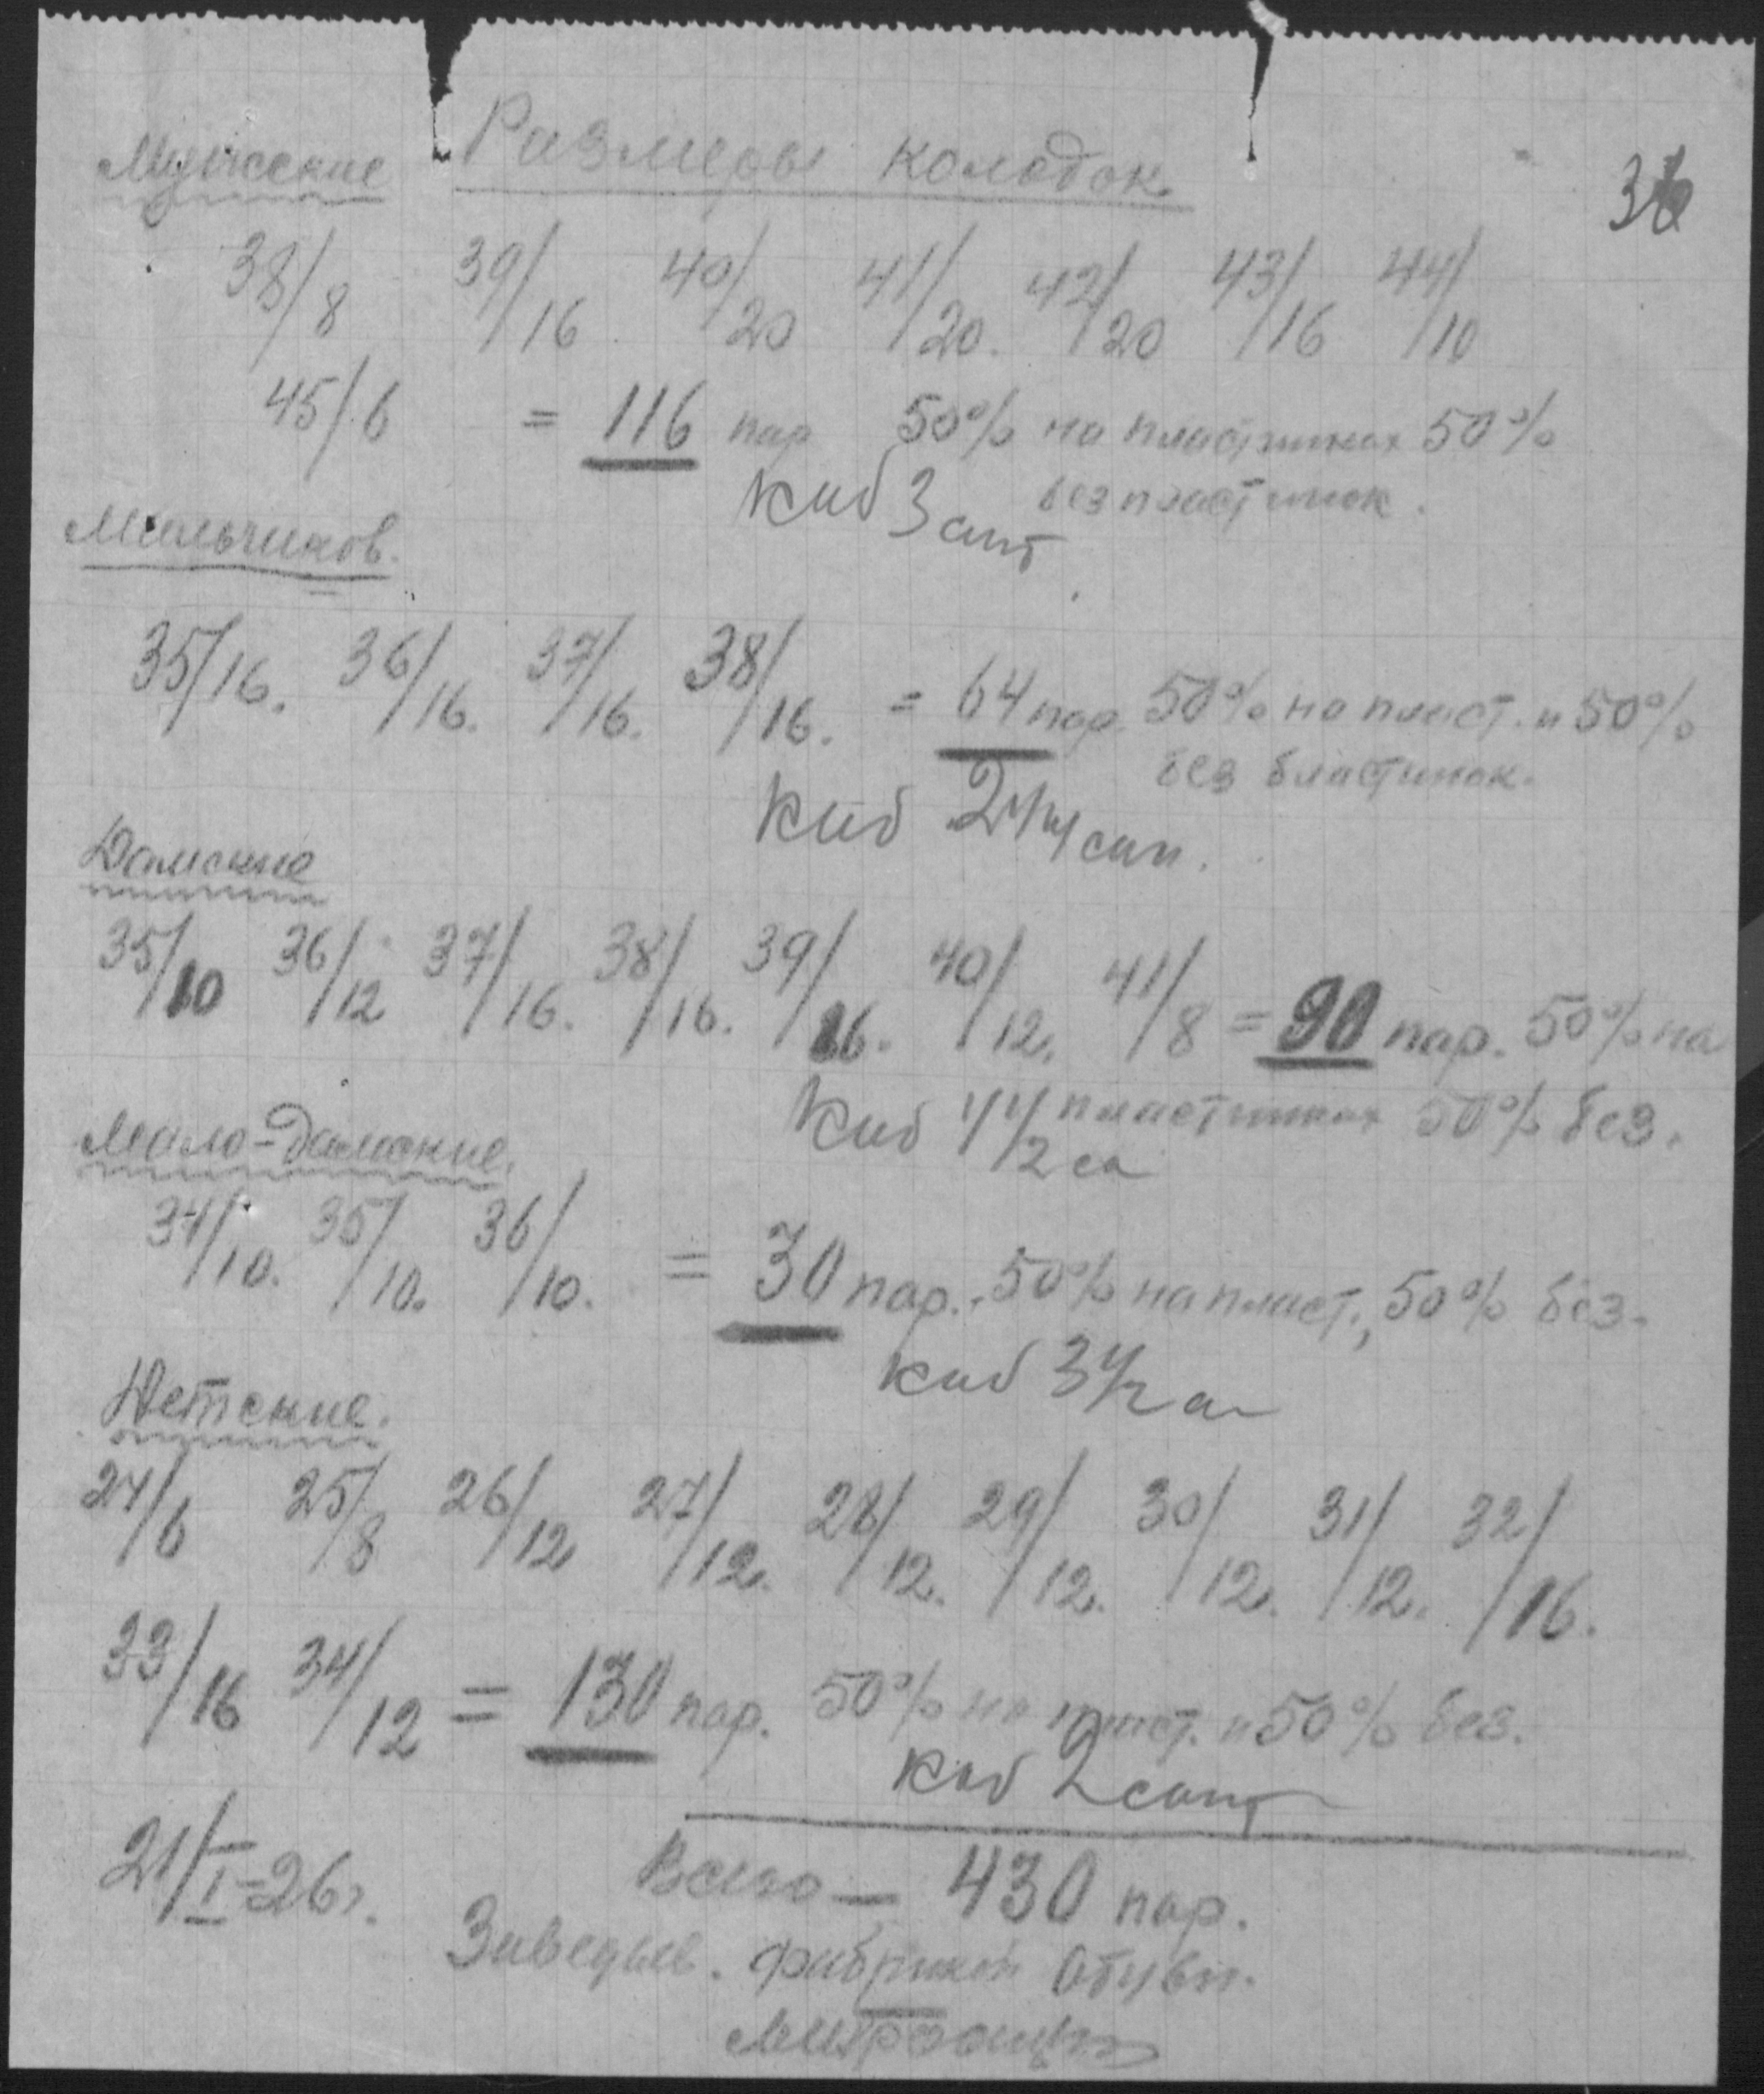 Размеры колодок.
Мужские
36
38/8 39/16 40/20 41/20. 42/20 43/16 44/10
45/6 = 116 пар 50% на пластинках 50%
без пластинок.
Каб 3 сант
Мальчиков.
35/16. 36/16. 37/16. 38/16. = 64 пар. 50% на пласт. и 50%
без бластинок.
Каб 2 1/4 сан.
Дамские
35/10 36/12 37/16. 38/16. 39/16. 40/12. 41/8 = 90 пар. 50% на
пластинках 50% без.
Каб 4 1/2 са
Мало-дамские.
34/10. 35/10. 36/10. = 30 пар. 50% на пласт., 50% без.
Каб 3 1/2 са
Детские.
24/6 25/8 26/12 27/12. 28/12. 29/12. 30/12. 31/12. 32/16.
33/16 34/12 = 130 пар. 50% на пласт. и 50% без.
Каб 2 сант
Всего — 430 пар.
21/I-26г.
Заведыв. фабрикой Обуви.